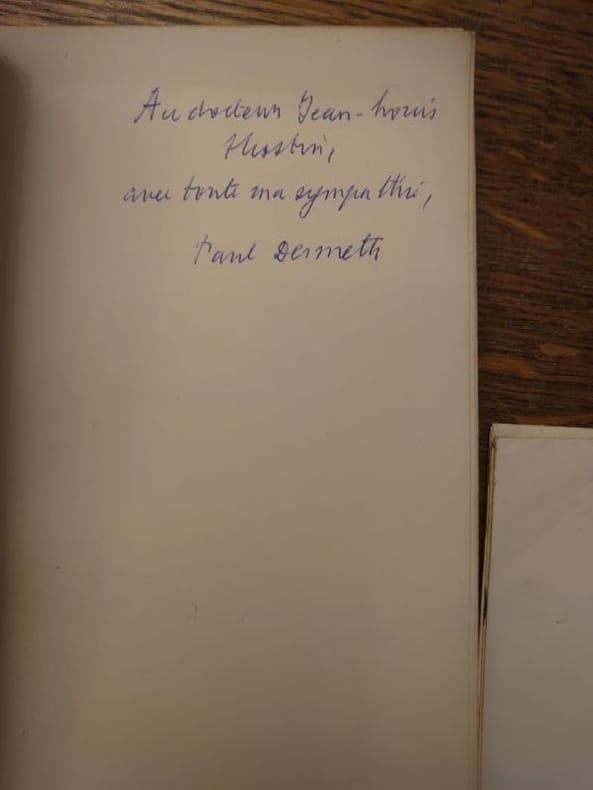 Au docteur Jean-Louis
avec toute ma sympathie,
Paul Dermeth